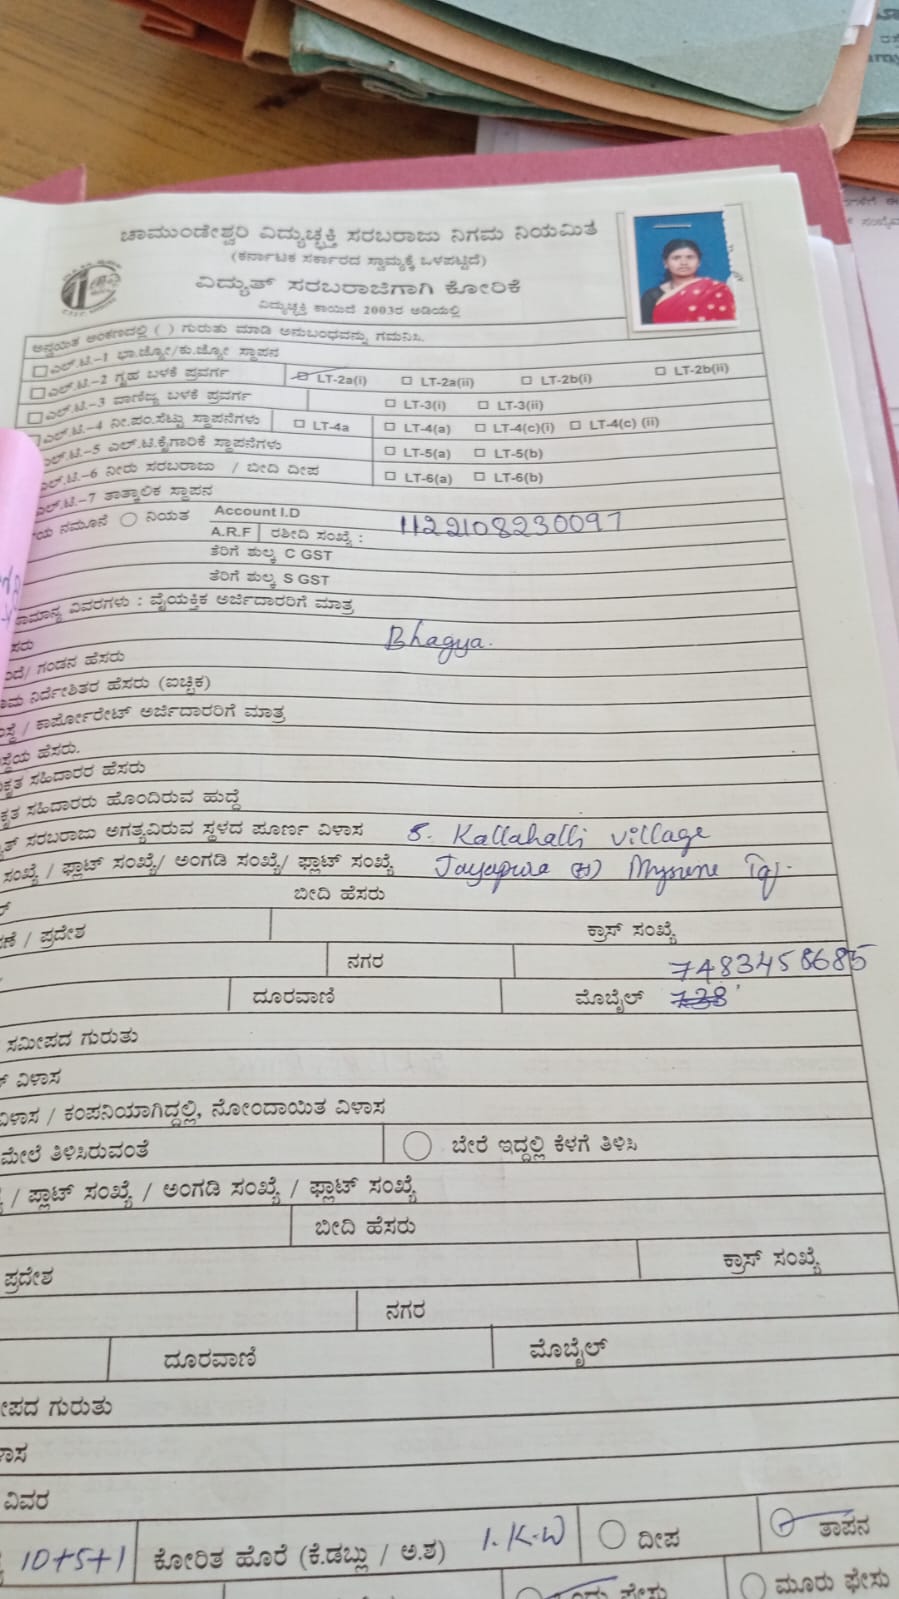 ಚಾಮುಂಡೇಶ್ವರಿ ವಿದ್ಯುಚ್ಛಕ್ತಿ ಸರಬರಾಜು ನಿಗಮ ನಿಯಮಿತ
(ಕರ್ನಾಟಕ ಸರ್ಕಾರದ ಸ್ವಾಮ್ಯಕ್ಕೆ ಒಳಪಟ್ಟಿದೆ)
ವಿದ್ಯುತ್ ಸರಬರಾಜಿಗಾಗಿ ಕೋರಿಕೆ
ವಿದ್ಯುಚ್ಛಕ್ತಿ ಕಾಯಿದೆ 2003ರ ಅಡಿಯಲ್ಲಿ
ಅನ್ವಯಿತ ಅಂಕಣದಲ್ಲಿ ( ) ಗುರುತು ಮಾಡಿ ಅನುಬಂಧವನ್ನು ಗಮನಿಸಿ.
ಎಲ್.ಟಿ.-1 ಭಾ.ಜ್ಯೋ/ಕು.ಜ್ಯೋ ಸ್ಥಾಪನ
ಎಲ್.ಟಿ.-2 ಗೃಹ ಬಳಕೆ ಪ್ರವರ್ಗ LT-2a(i) LT-2a(ii) LT-2b(i) LT-2b(ii)
ಎಲ್.ಟಿ.-3 ವಾಣಿಜ್ಯ ಬಳಕೆ ಪ್ರವರ್ಗ LT-3(i) LT-3(ii)
ಎಲ್.ಟಿ.-4 ನೀ.ಪಂ.ಸೆಟ್ಟು ಸ್ಥಾಪನೆಗಳು LT-4a LT-4(a) LT-4(c)(i) LT-4(c) (ii)
ಎಲ್.ಟಿ.-5 ಎಲ್.ಟಿ.ಕೈಗಾರಿಕೆ ಸ್ಥಾಪನೆಗಳು LT-5(a) LT-5(b)
ಎಲ್.ಟಿ.-6 ನೀರು ಸರಬರಾಜು / ಬೀದಿ ದೀಪ LT-6(a) LT-6(b)
ಎಲ್.ಟಿ.-7 ತಾತ್ಕಾಲಿಕ ಸ್ಥಾಪನ
ನಮೂನೆ ನಿಯತ Account I.D
A.R.F ರಶೀದಿ ಸಂಖ್ಯೆ : 1122108230097
ತೆರಿಗೆ ಶುಲ್ಕ C GST
ತೆರಿಗೆ ಶುಲ್ಕ S GST
ವಿವರಗಳು : ವೈಯಕ್ತಿಕ ಅರ್ಜಿದಾರರಿಗೆ ಮಾತ್ರ
Bhagya.
ಗಂಡನ ಹೆಸರು
ನಿರ್ದೇಶಿತರ ಹೆಸರು (ಐಚ್ಛಿಕ)
/ ಕಾರ್ಪೋರೇಟ್ ಅರ್ಜಿದಾರರಿಗೆ ಮಾತ್ರ
ಹೆಸರು.
ಸಹಿದಾರರ ಹೆಸರು
ಸಹಿದಾರರು ಹೊಂದಿರುವ ಹುದ್ದೆ
ಸರಬರಾಜು ಅಗತ್ಯವಿರುವ ಸ್ಥಳದ ಪೂರ್ಣ ವಿಳಾಸ S. Kallahalli village
ಸಂಖ್ಯೆ / ಫ್ಲಾಟ್ ಸಂಖ್ಯೆ/ ಅಂಗಡಿ ಸಂಖ್ಯೆ/ ಫ್ಲಾಟ್ ಸಂಖ್ಯೆ Jayapura (H) Mysure Tq.
ಬೀದಿ ಹೆಸರು
/ ಪ್ರದೇಶ ಕ್ರಾಸ್ ಸಂಖ್ಯೆ
ನಗರ 7483458685
ದೂರವಾಣಿ ಮೊಬೈಲ್
ಸಮೀಪದ ಗುರುತು
ವಿಳಾಸ
/ ಕಂಪನಿಯಾಗಿದ್ದಲ್ಲಿ, ನೋಂದಾಯಿತ ವಿಳಾಸ
ಮೇಲೆ ತಿಳಿಸಿರುವಂತೆ ಬೇರೆ ಇದ್ದಲ್ಲಿ ಕೆಳಗೆ ತಿಳಿಸಿ
/ ಫ್ಲಾಟ್ ಸಂಖ್ಯೆ / ಅಂಗಡಿ ಸಂಖ್ಯೆ / ಫ್ಲಾಟ್ ಸಂಖ್ಯೆ
ಬೀದಿ ಹೆಸರು
ಪ್ರದೇಶ ಕ್ರಾಸ್ ಸಂಖ್ಯೆ
ನಗರ
ದೂರವಾಣಿ ಮೊಬೈಲ್
ಗುರುತು
ವಿವರ
10+5+1 ಕೋರಿತ ಹೊರೆ (ಕೆ.ಡಬ್ಲು / ಅ.ಶ) 1.K.W ದೀಪ ತಾಪನ
ಫೇಸು ಮೂರು ಫೇಸು